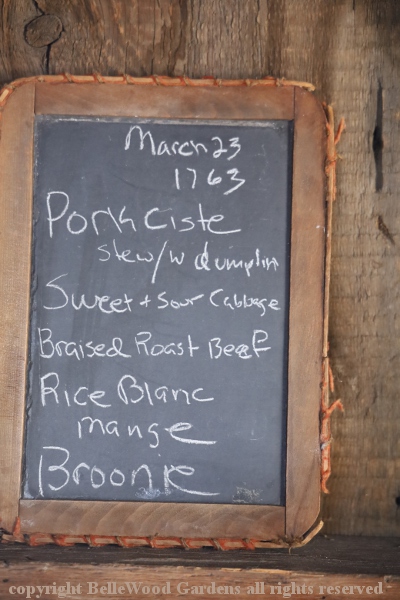 March 23
1763
Pork Ciste
stew/w dumplin
Sweet + Sour Cabbage
Braised Roast Beef
Rice Blanc
mange
Broonie
copyright BelleWood Gardens all rights reserved